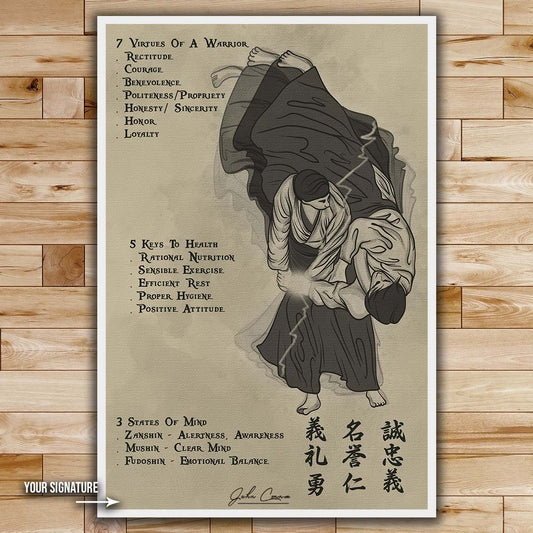 7 Virtues Of A Warrior
. Rectitude
. Courage
. Benevolence
. Politeness/Propriety
. Honesty/ Sincerity
. Honor
. Loyalty
5 Keys To Health
. Rational Nutrition
. Sensible Exercise
. Efficient Rest
. Proper Hygiene
. Positive Attitude
3 States Of Mind
. Zanshin - Alertness, Awareness
. Mushin - Clear Mind
. Fudoshin - Emotional Balance
誠忠義
名誉仁
義礼勇
YOUR SIGNATURE
John